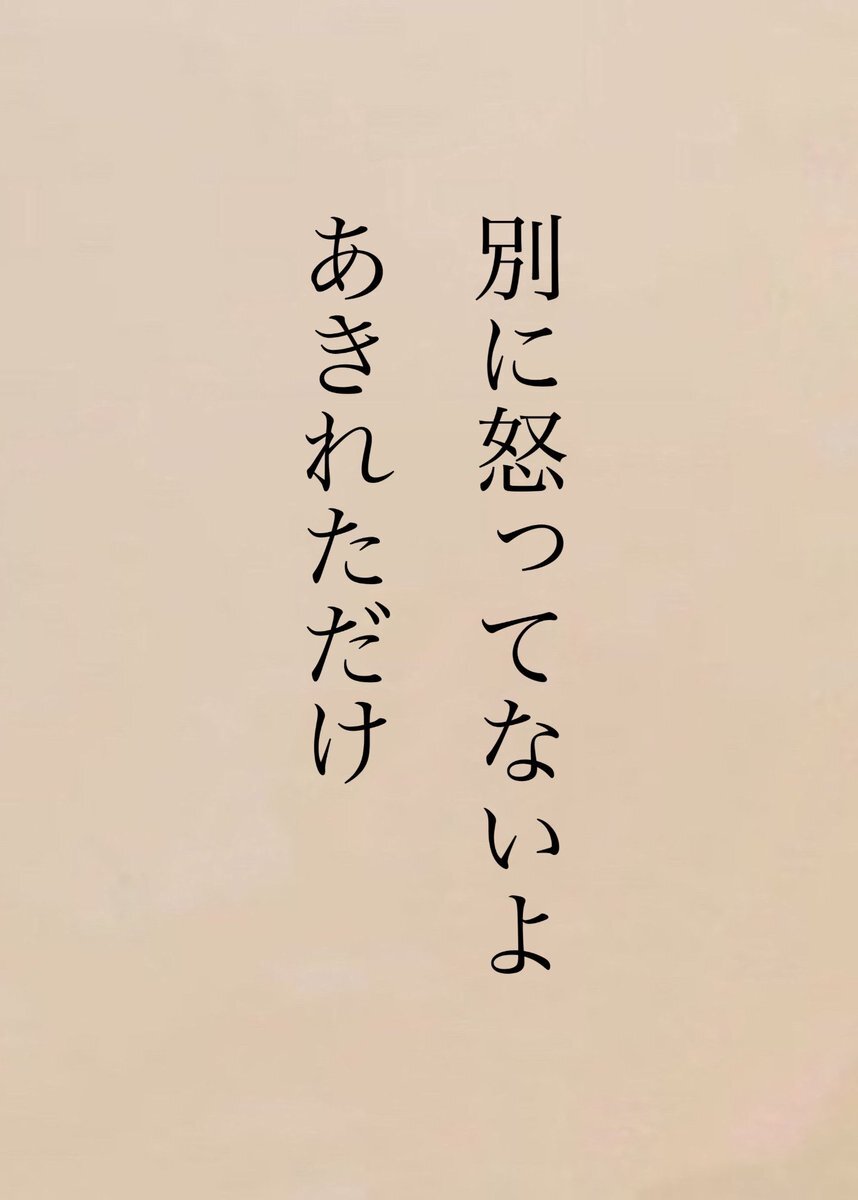 別に怒ってないよ
あきれただけ